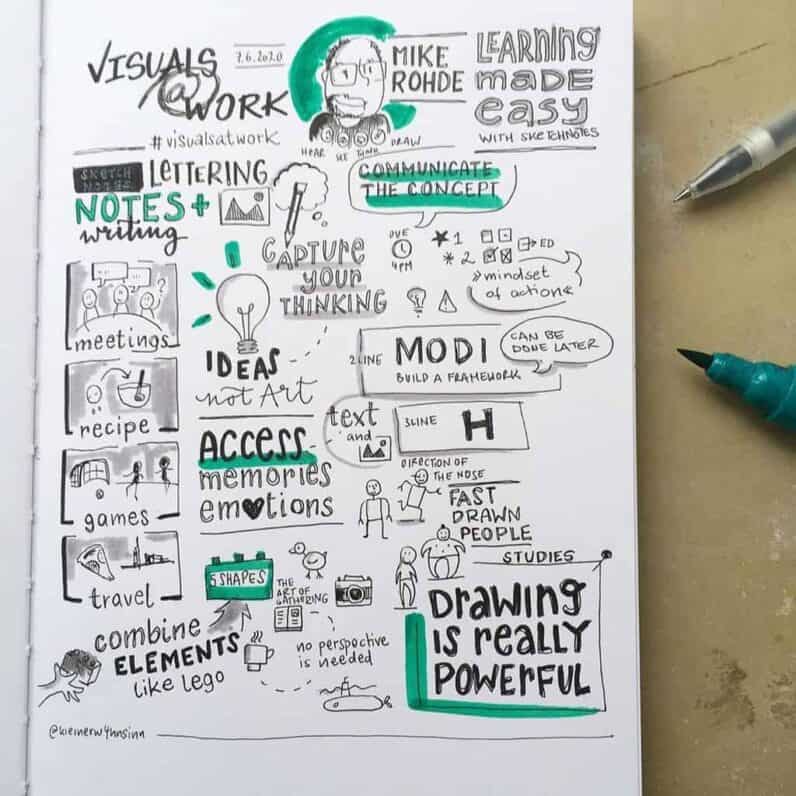 VISUALS
@WORK
7.6.2020
#visualsatwork
MIKE
ROHDE
HEAR SEE THINK DRAW
LEARNING
MADE
easy
WITH SKETCHNOTES
SKETCH
NOTES
LETTERING
NOTES+
writing
COMMUNICATE
THE CONCEPT
meetings
recipe
games
travel
CAPTURE
your
THINKING
IDEAS
not Art
ACCESS
memories
emotions
DUE
4PM
1
2
ED
mindset
of action
2LINE
MODI
BUILD A FRAMEWORK
CAN BE
DONE LATER
text
and
3LINE
H
DIRECTION OF
THE NOSE
FAST
DRAWN
PEOPLE
STUDIES
DRAWING
IS REALLY
POWERFUL
5 SHAPES
THE
ART OF
GATHERING
combine
ELEMENTS
like Lego
no perspective
is needed